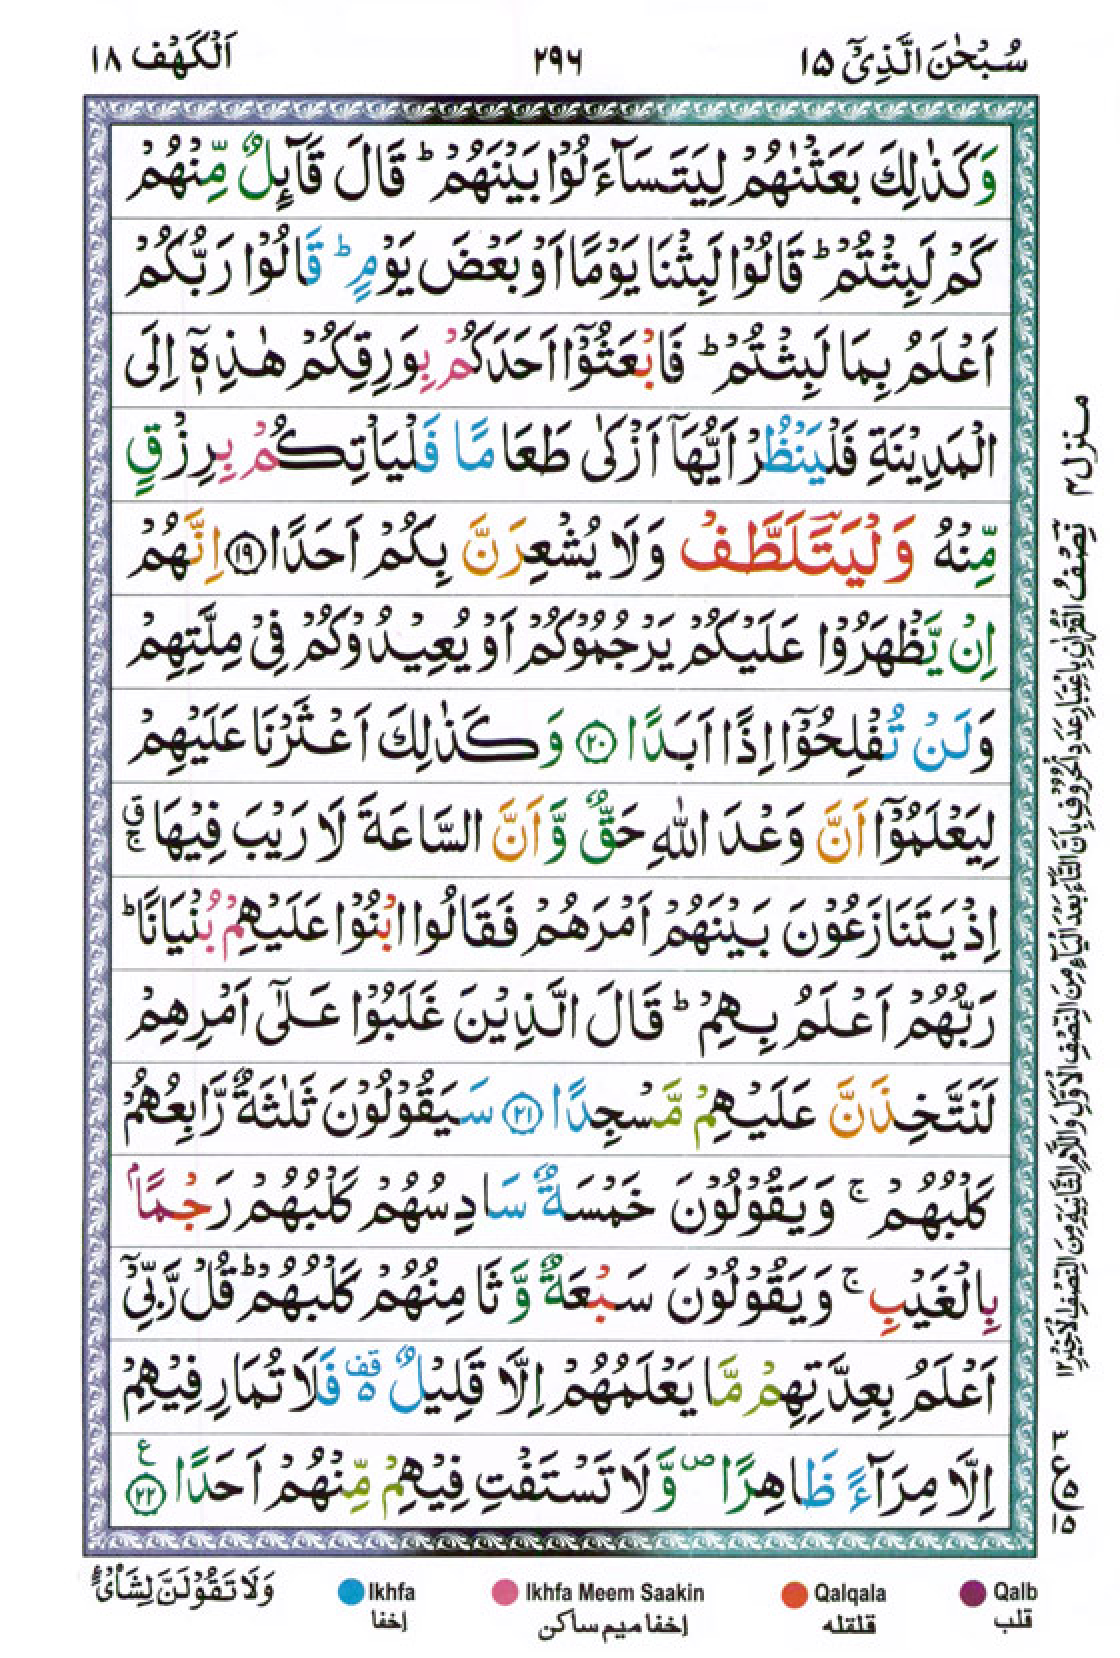 سُبْحٰنَ الَّذِیْۤ ١٥
٢٩٦
اَلْكَهْف ١٨
وَكَذٰلِكَ بَعَثْنٰهُمْ لِیَتَسَآءَلُوْا بَیْنَهُمْ ؕ قَالَ قَآىِٕلٌ مِّنْهُمْ
كَمْ لَبِثْتُمْ ؕ قَالُوْا لَبِثْنَا یَوْمًا اَوْ بَعْضَ یَوْمٍ ؕ قَالُوْا رَبُّكُمْ
اَعْلَمُ بِمَا لَبِثْتُمْ ؕ فَابْعَثُوْۤا اَحَدَكُمْ بِوَرِقِكُمْ هٰذِهٖۤ اِلَی
الْمَدِیْنَةِ فَلْیَنْظُرْ اَیُّهَاۤ اَزْكٰی طَعَامًا فَلْیَاْتِكُمْ بِرِزْقٍ
مِّنْهُ وَلْیَتَلَطَّفْ وَلَا یُشْعِرَنَّ بِكُمْ اَحَدًا ⑲ اِنَّهُمْ
اِنْ یَّظْهَرُوْا عَلَیْكُمْ یَرْجُمُوْكُمْ اَوْ یُعِیْدُوْكُمْ فِیْ مِلَّتِهِمْ
وَلَنْ تُفْلِحُوْۤا اِذًا اَبَدًا ⑳ وَكَذٰلِكَ اَعْثَرْنَا عَلَیْهِمْ
لِیَعْلَمُوْۤا اَنَّ وَعْدَ اللّٰهِ حَقٌّ وَّاَنَّ السَّاعَةَ لَا رَیْبَ فِیْهَا ۚۗ
اِذْ یَتَنَازَعُوْنَ بَیْنَهُمْ اَمْرَهُمْ فَقَالُوا ابْنُوْا عَلَیْهِمْ بُنْیَانًا ؕ
رَبُّهُمْ اَعْلَمُ بِهِمْ ؕ قَالَ الَّذِیْنَ غَلَبُوْا عَلٰۤی اَمْرِهِمْ
لَنَتَّخِذَنَّ عَلَیْهِمْ مَّسْجِدًا ㉑ سَیَقُوْلُوْنَ ثَلٰثَةٌ رَّابِعُهُمْ
كَلْبُهُمْ ۚ وَیَقُوْلُوْنَ خَمْسَةٌ سَادِسُهُمْ كَلْبُهُمْ رَجْمًۢا
بِالْغَیْبِ ۚ وَیَقُوْلُوْنَ سَبْعَةٌ وَّثَامِنُهُمْ كَلْبُهُمْ ؕ قُلْ رَّبِّیْۤ
اَعْلَمُ بِعِدَّتِهِمْ مَّا یَعْلَمُهُمْ اِلَّا قَلِیْلٌ ۵ قف فَلَا تُمَارِ فِیْهِمْ
اِلَّا مِرَآءً ظَاهِرًا ص وَّلَا تَسْتَفْتِ فِیْهِمْ مِّنْهُمْ اَحَدًا ㉒ ع
منزل ٤
نِصْفُ الْقُرْاٰنِ بِاِعْتِبَارِ عَدَدِ الْحُرُوْفِ بِاَنَّ التَّاءَ بَعْدَ الْیَاءِ مِنَ النِّصْفِ الْاَوَّلِ وَاللَّامَ الثَّانِیَةَ مِنَ النِّصْفِ الْاَخِیْرِ ١٢
٣
ع ٥
١٥
وَلَا تَقُوْلَنَّ لِشَایْءٍ
Ikhfa
إخفا
Ikhfa Meem Saakin
إخفا میم ساکن
Qalqala
قلقله
Qalb
قلب